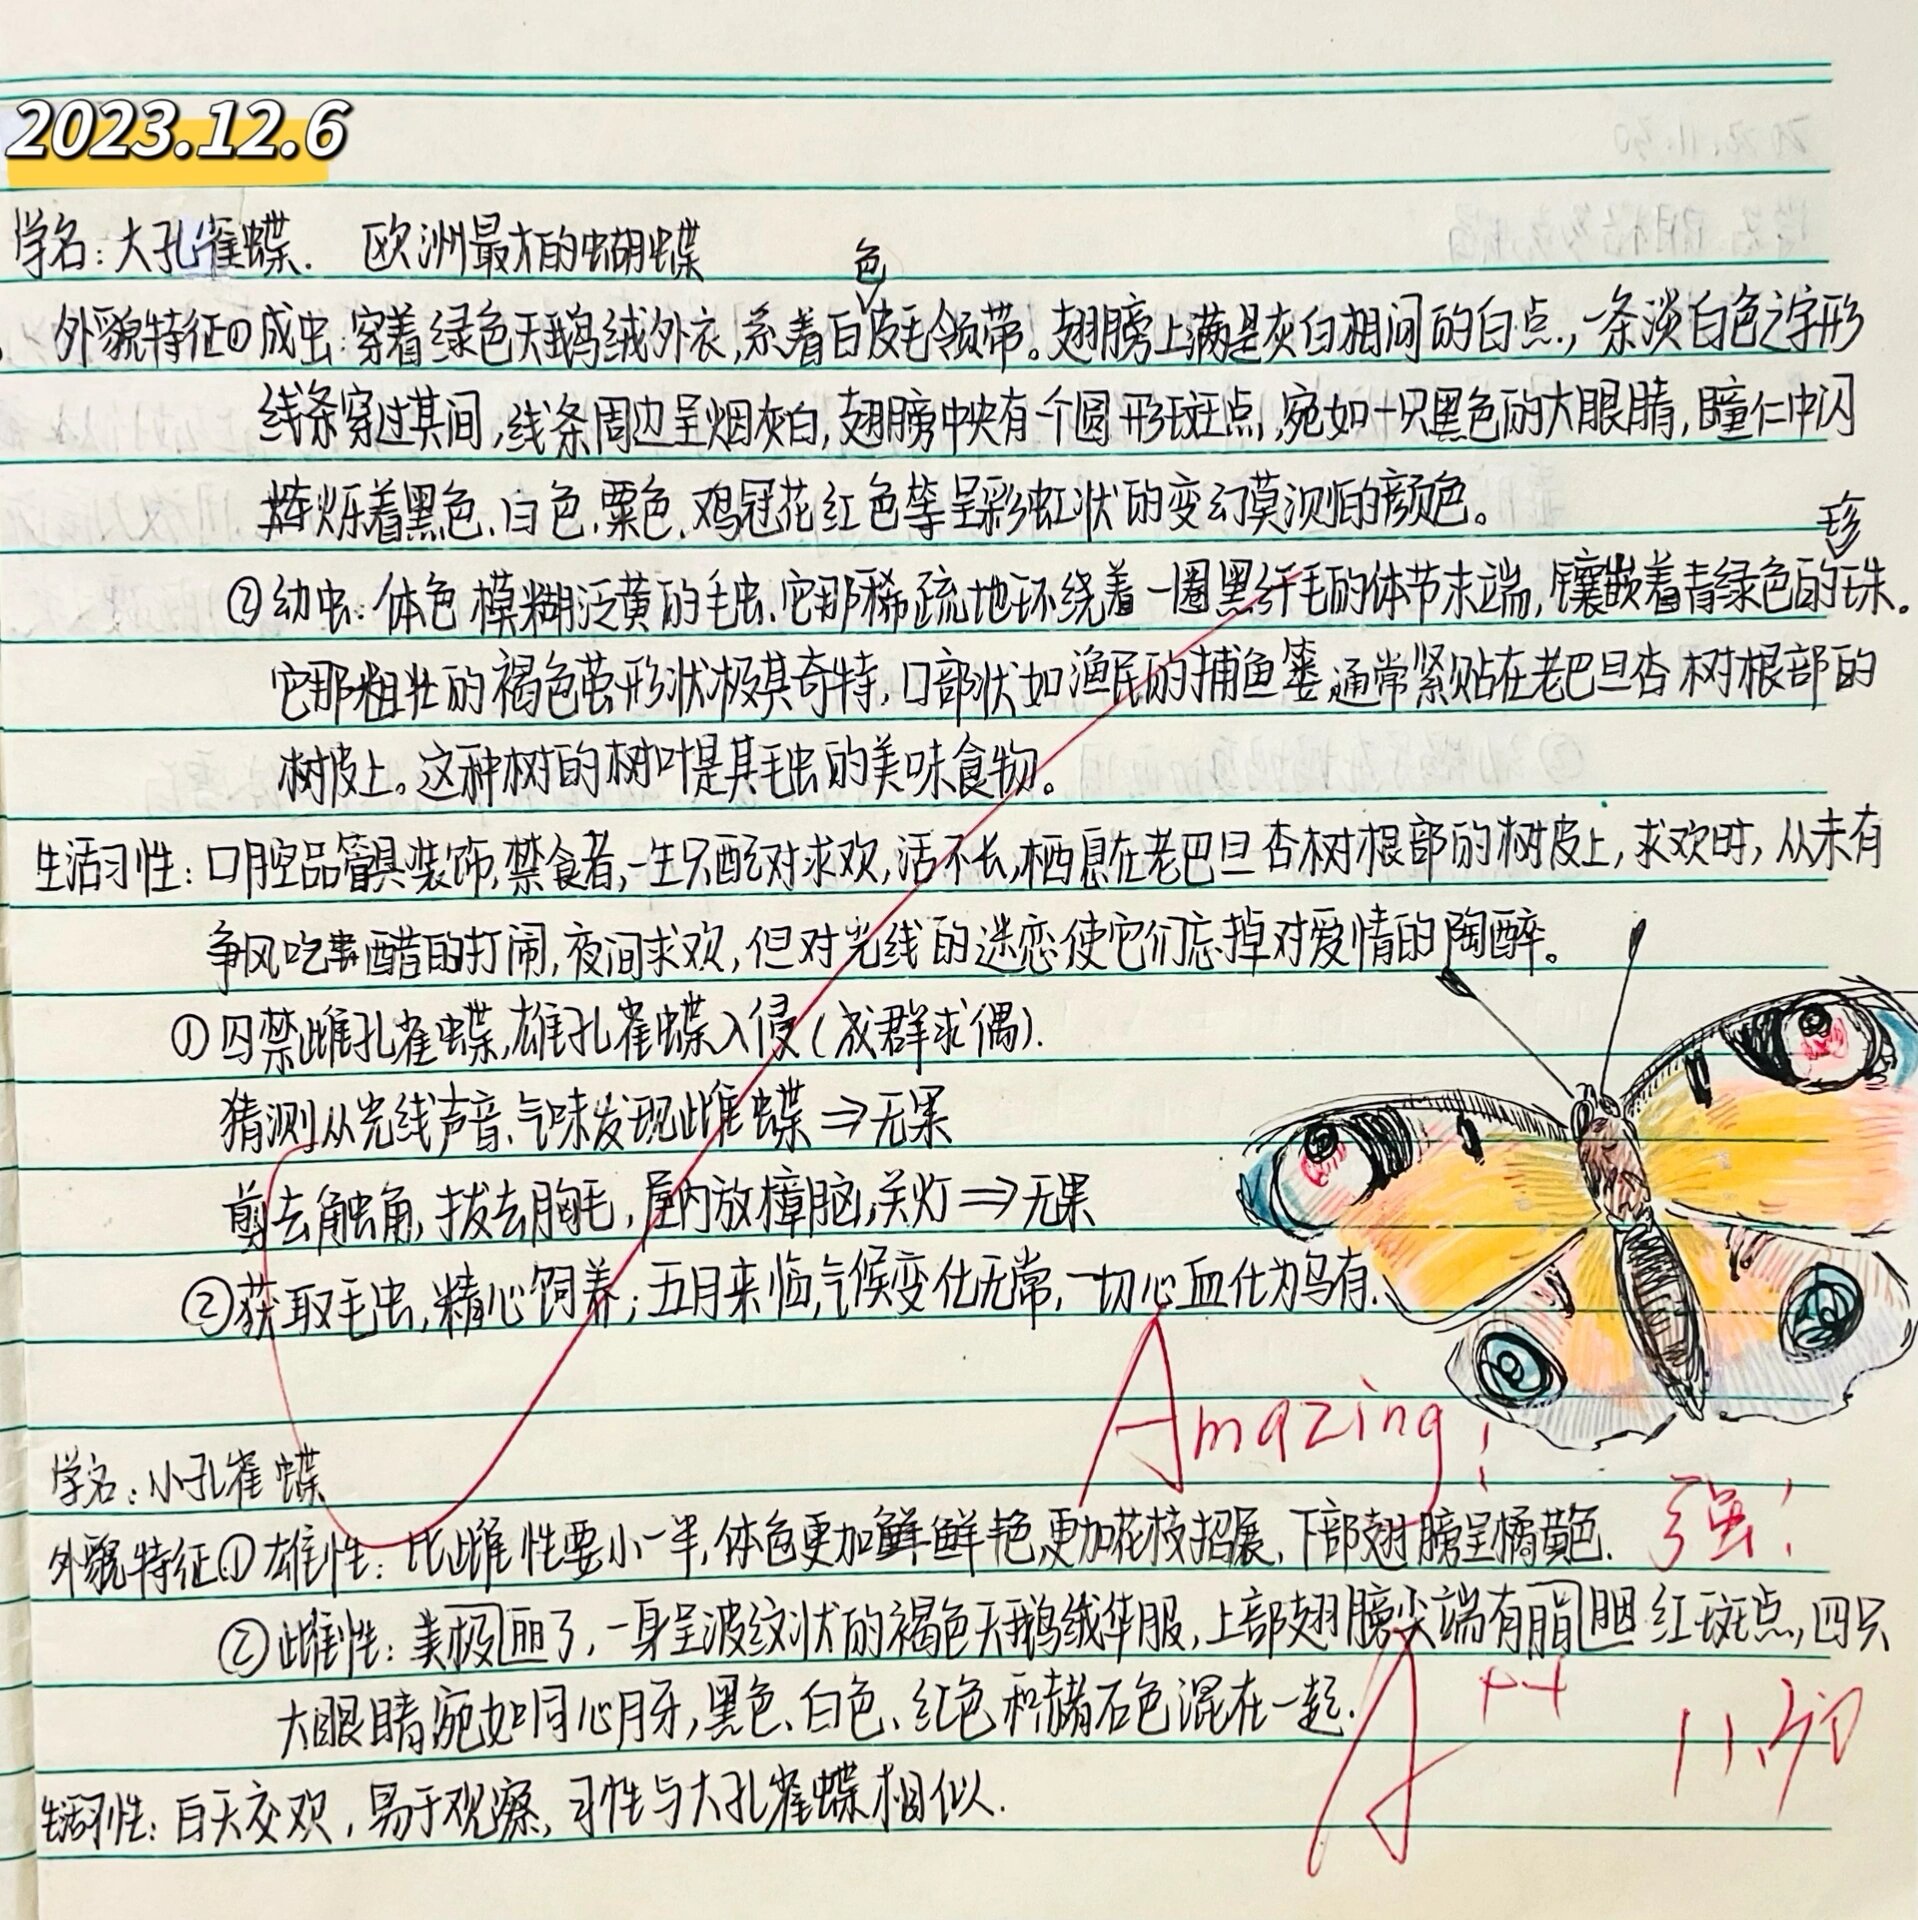 2023.12.6
学名：大孔雀蝶． 欧洲最大的蝴蝶
外貌特征①成虫：穿着绿色天鹅绒外衣，系着白色皮毛领带。翅膀上满是灰白相间的白点，一条淡白色之字形
线条穿过其间，线条周边呈烟灰白，翅膀中央有一个圆形斑点，宛如一只黑色的大眼睛，瞳仁中闪
烁着黑色、白色、栗色、鸡冠花红色等呈彩虹状的变幻莫测的颜色。
②幼虫：体色模糊泛黄的毛虫、它那稀疏地环绕着一圈黑纤毛的体节末端，镶嵌着青绿色的珍珠。
它那粗壮的褐色茧形状极其奇特，口部状如渔民的捕鱼篓，通常紧贴在老巴旦杏树根部的
树皮上。这种树的树叶是其毛虫的美味食物。
生活习性：口腔品管具装饰，禁食者，一生只配对求欢，活不长，栖息在老巴旦杏树根部的树皮上，求欢时，从未有
争风吃醋的打闹，夜间求欢，但对光线的迷恋使它们忘掉对爱情的陶醉。
①囚禁雌孔雀蝶，雄孔雀蝶入侵（成群求偶）．
猜测从光线声音、气味发现雌蝶⇒无果
剪去触角，拔去胸毛，屋内放樟脑，关灯⇒无果
②获取毛虫，精心饲养；五月来临，气候变化无常，一切心血化为乌有．
Amazing！
学名：小孔雀蝶
外貌特征：①雄性：比雌性要小一半，体色更加鲜艳，更加花枝招展，下部翅膀呈橘黄色．
强！
②雌性：美极了，一身呈波纹状的褐色天鹅绒华服，上部翅膀尖端有胭脂红斑点，四只
大眼睛宛如同心月牙，黑色、白色、红色和赭石色混在一起．
A++
生活习性：白天交欢，易于观察，习性与大孔雀蝶相似．